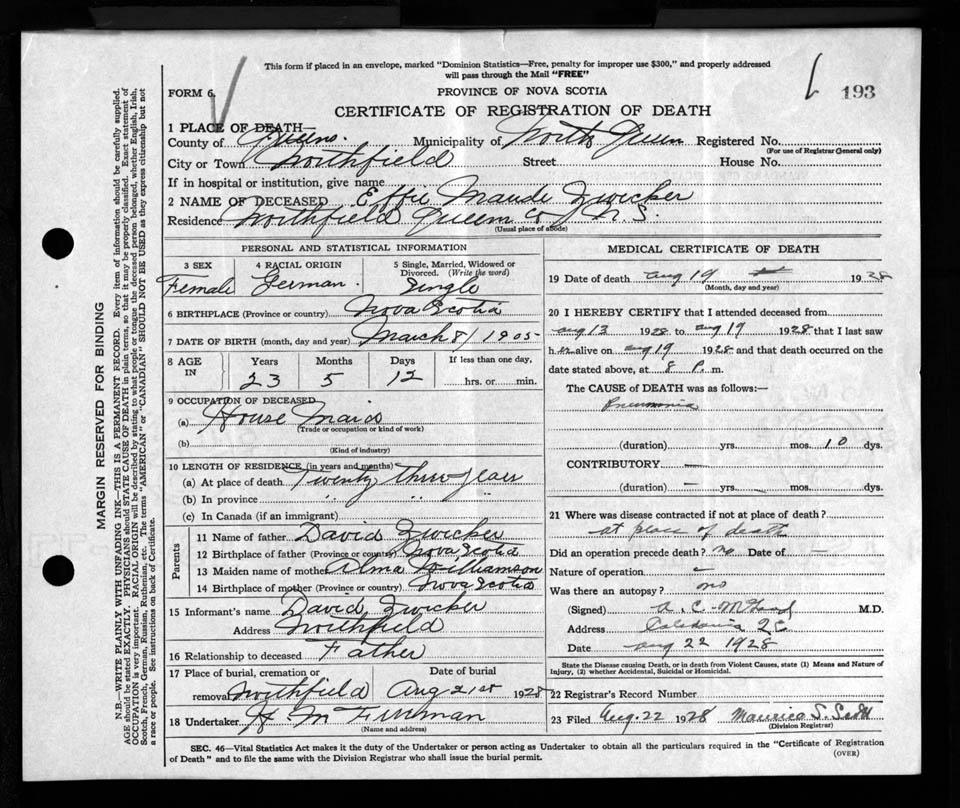 This form if placed in an envelope, marked "Dominion Statistics—Free, penalty for improper use $300," and properly addressed
will pass through the Mail "FREE"
FORM 6.
PROVINCE OF NOVA SCOTIA
193
CERTIFICATE OF REGISTRATION OF DEATH
1 PLACE OF DEATH—
County of Queens. Municipality of North Queen Registered No.
(For use of Registrar General only)
City or Town Northfield Street House No.
If in hospital or institution, give name
2 NAME OF DECEASED Effie Maude Zwicker
Residence Northfield Queen Co N.S.
(Usual place of abode)
PERSONAL AND STATISTICAL INFORMATION
3 SEX 4 RACIAL ORIGIN 5 Single, Married, Widowed or
Divorced. (Write the word)
Female German. Single
6 BIRTHPLACE (Province or country) Nova Scotia
7 DATE OF BIRTH (month, day and year) March 8/1905
8 AGE IN Years Months Days If less than one day,
23 5 12 hrs. or min.
9 OCCUPATION OF DECEASED
(a) House Maid
(Trade or occupation or kind of work)
(b)
(Kind of industry)
10 LENGTH OF RESIDENCE (in years and months)
(a) At place of death Twenty three years
(b) In province " " "
(c) In Canada (if an immigrant)
Parents
11 Name of father David Zwicker
12 Birthplace of father (Province or country) Nova Scotia
13 Maiden name of mother Alma Williamson
14 Birthplace of mother (Province or country) Nova Scotia
15 Informant's name David Zwicker
Address Northfield
16 Relationship to deceased Father
17 Place of burial, cremation or Date of burial
removal Northfield Aug 21st 1928
18 Undertaker H M
(Name and address)
MEDICAL CERTIFICATE OF DEATH
19 Date of death Aug 19 1928
(Month, day and year)
20 I HEREBY CERTIFY that I attended deceased from
aug 13 1928 to aug 19 1928 that I last saw
h er alive on aug 19 1928 and that death occurred on the
date stated above, at 8 P. m.
The CAUSE of DEATH was as follows:—
Pneumonia
(duration) yrs. mos. 10 dys.
CONTRIBUTORY —
(duration) — yrs. — mos. — dys.
21 Where was disease contracted if not at place of death?
at place of death
Did an operation precede death? no Date of —
Nature of operation —
Was there an autopsy? no
(Signed) C. M.D.
Address Caledonia Q C
Date aug 22 1928
State the Disease causing Death, or in death from Violent Causes, state (1) Means and Nature of
Injury, (2) whether Accidental, Suicidal or Homicidal.
22 Registrar's Record Number
23 Filed Aug. 22 1928 Maurice S.
(Division Registrar)
SEC. 46—Vital Statistics Act makes it the duty of the Undertaker or person acting as Undertaker to obtain all the particulars required in the "Certificate of Registration
of Death" and to file the same with the Division Registrar who shall issue the burial permit.
(OVER)
MARGIN RESERVED FOR BINDING
N.B.—WRITE PLAINLY WITH UNFADING INK—THIS IS A PERMANENT RECORD. Every item of information should be carefully supplied.
AGE should be stated EXACTLY. PHYSICIANS should STATE CAUSE OF DEATH in plain terms, so that it may be properly classified. Exact statement of
OCCUPATION is very important. RACIAL ORIGIN will be described by stating to what people or tongue the deceased person belonged, whether English, Irish,
Scotch, French, German, Russian, Ruthenian, etc. The terms "AMERICAN" or "CANADIAN" SHOULD NOT BE USED as they express citizenship but not
a race or people. See instructions on back of Certificate.